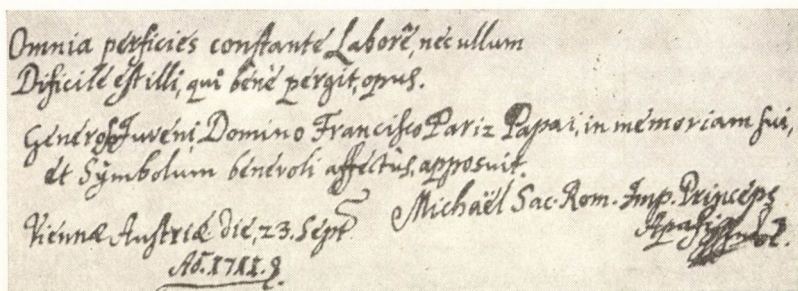 Omnia perficies constante Labore, nec ullum
Dificile est illi, qui bene pergit, opus.
Generoso Juveni Domino Francisco Pariz Papai, in memoriam sui,
et Symbolum benevoli affectus, apposuit.
Michaël Sac. Rom. Imp. Princeps
Apafi
Viennæ Austriæ die, 23. Sept
Aõ. 1711.